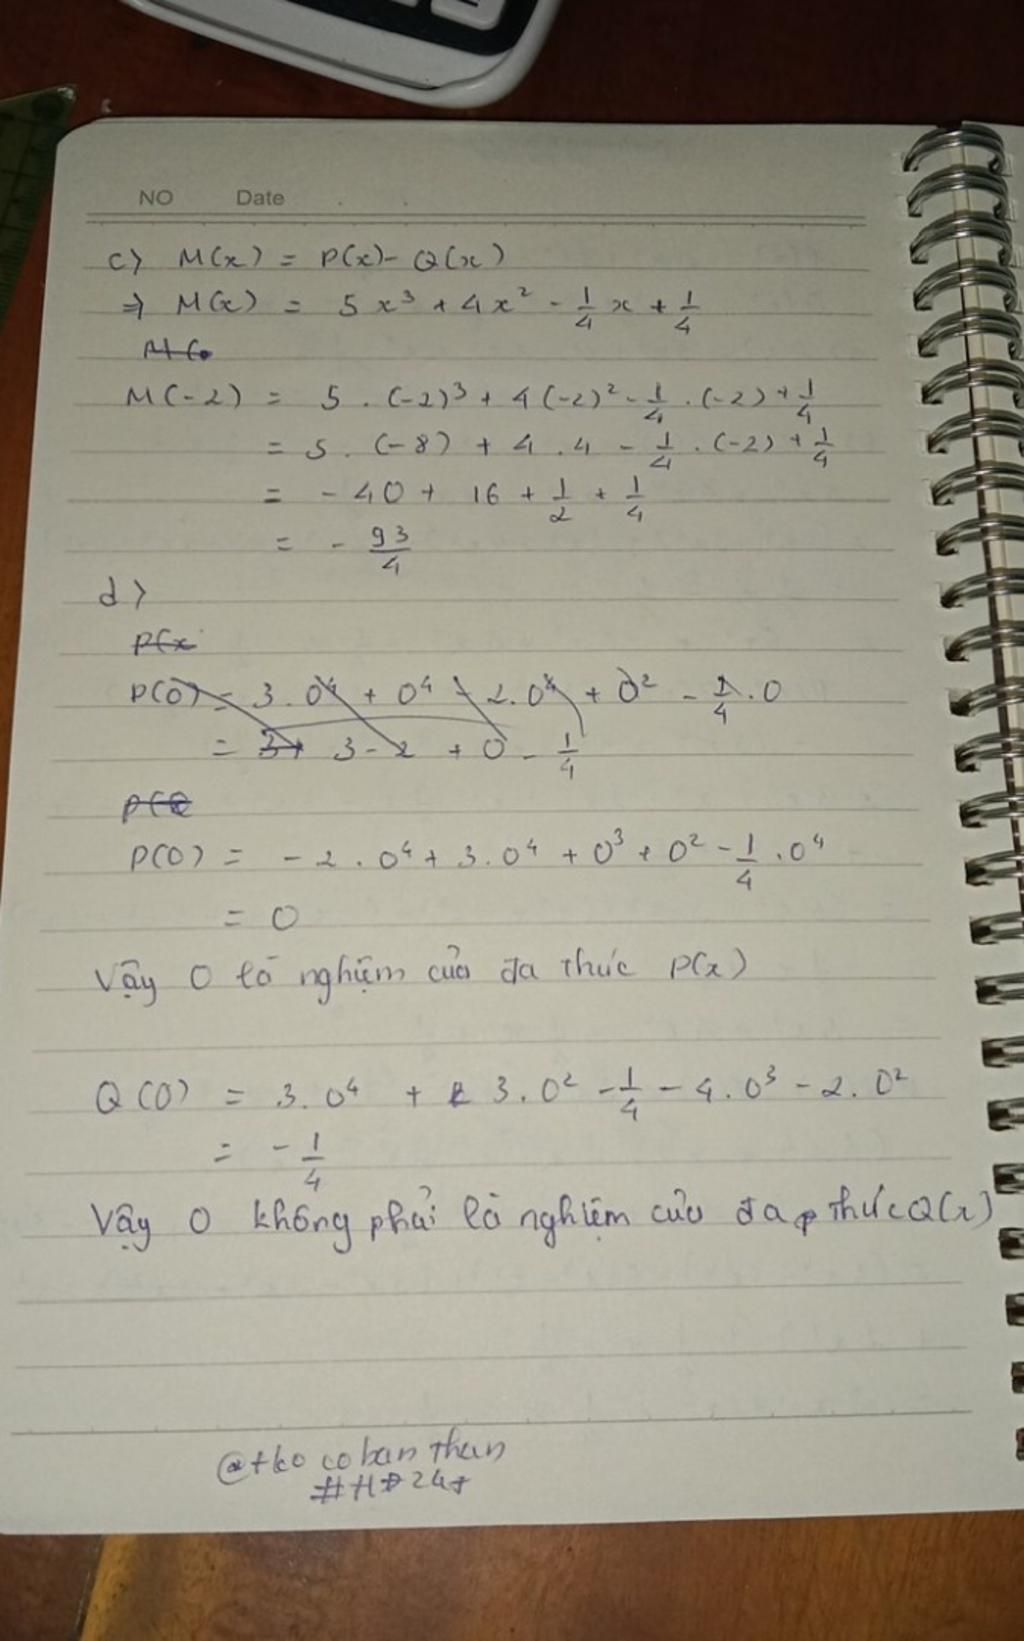 NO Date
c) M(x) = P(x) - Q(x)
=> M(x) = 5x³ + 4x² - 1/4 x + 1/4
M(-2) = 5 . (-2)³ + 4(-2)² - 1/4 . (-2) + 1/4
= 5 . (-8) + 4 . 4 - 1/4 . (-2) + 1/4
= - 40 + 16 + 1/2 + 1/4
= - 93/4
d)
P(x
P(0) = 3.0⁴ + 0⁴ - 2.0⁴ + 0² - 1/4 . 0
= 3+ 3 - 2 + 0 - 1/4
P(0) = - 2 . 0⁴ + 3 . 0⁴ + 0³ + 0² - 1/4 . 0⁴
= 0
Vậy 0 là nghiệm của đa thức P(x)
Q(0) = 3.0⁴ + 3.0² - 1/4 - 4.0³ - 2.0²
= - 1/4
Vậy 0 không phải là nghiệm của đa thức Q(x)
@tko co ban than